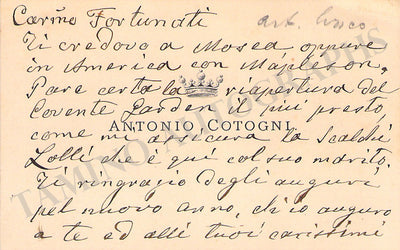 Carino Fortunati
Ti credevo a Mosca, oppure
in America con Mapleson.
Pare certa la riapertura del
Covente Garden il più presto,
ANTONIO COTOGNI
come mi assicura la Scalchi
Lolli che è quì col suo marito.
Ti ringrazio degli auguri
pel nuovo anno, ch'io auguro
a te ed alli tuoi carissimi
TAMINO AUTOGRAPHS